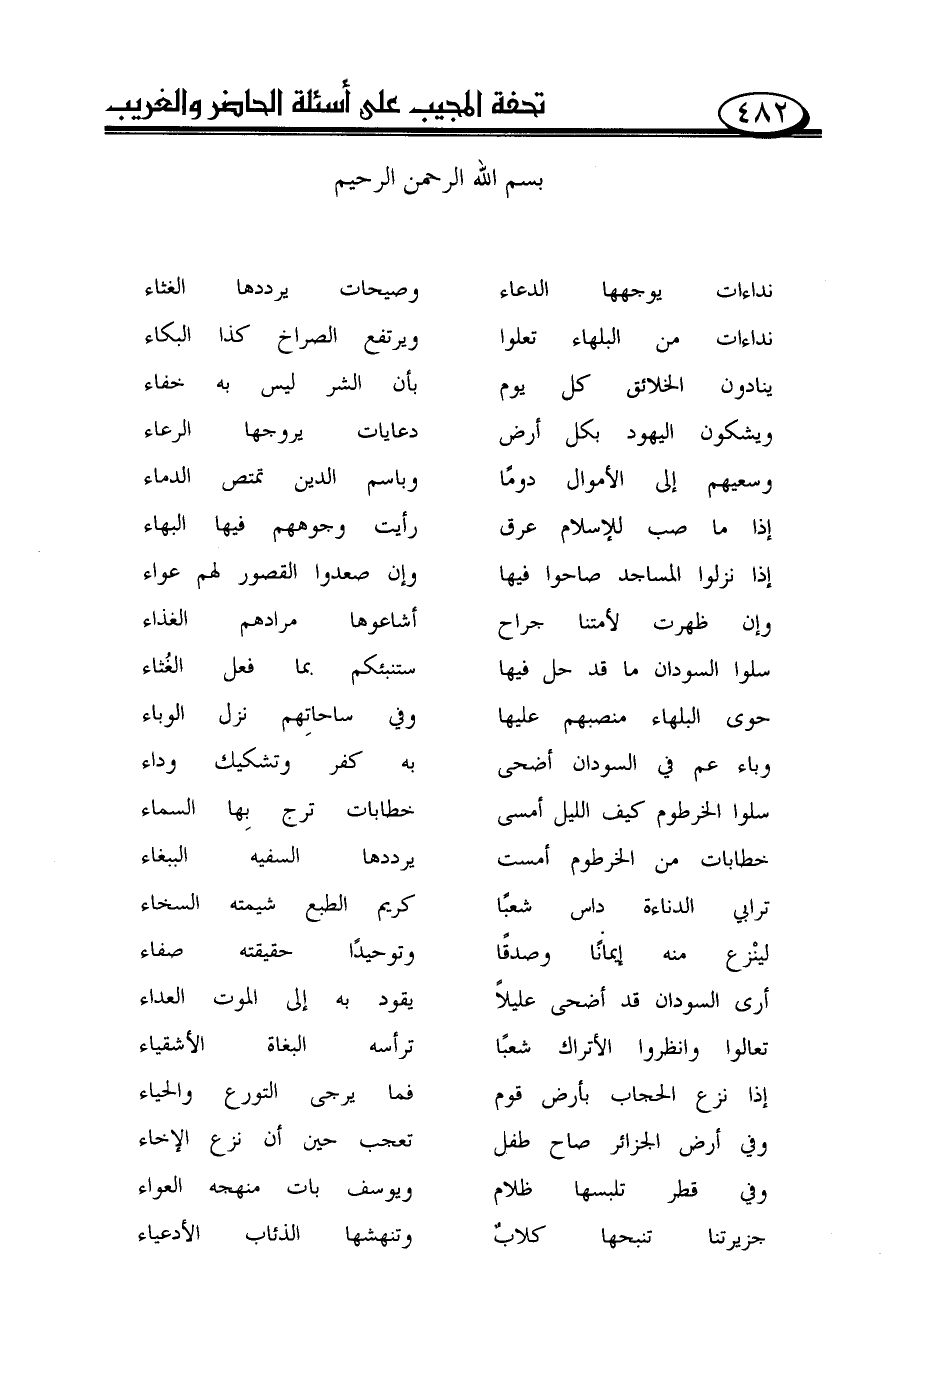 ٤٨٢ تحفة المجيب على أسئلة الحاضر والغريب
بسم الله الرحمن الرحيم
نداءات يوجهها الدعاء وصيحات يرددها الغثاء
نداءات من البلهاء تعلوا ويرتفع الصراخ كذا البكاء
ينادون الخلائق كل يوم بأن الشر ليس به خفاء
ويشكون اليهود بكل أرض دعايات يروجها الرعاء
وسعيهم إلى الأموال دومًا وباسم الدين تمتص الدماء
إذا ما صب للإسلام عرق رأيت وجوههم فيها البهاء
إذا نزلوا المساجد صاحوا فيها وإن صعدوا القصور لهم عواء
وإن ظهرت لأمتنا جراح أشاعوها مرادهم الغذاء
سلوا السودان ما قد حل فيها ستنبئكم بما فعل الغُثاء
حوى البلهاء منصبهم عليها وفي ساحاتِهم نزل الوباء
وباء عم في السودان أضحى به كفر وتشكيك وداء
سلوا الخرطوم كيف الليل أمسى خطابات ترج بِها السماء
خطابات من الخرطوم أمست يرددها السفيه الببغاء
ترابي الدناءة داس شعبًا كريم الطبع شيمته السخاء
لينْزع منه إيمانًا وصدقًا وتوحيدًا حقيقته صفاء
أرى السودان قد أضحى عليلاً يقود به إلى الموت العداء
تعالوا وانظروا الأتراك شعبًا ترأسه البغاة الأشقياء
إذا نزع الحجاب بأرض قوم فما يرجى التورع والحياء
وفي أرض الجزائر صاح طفل تعجب حين أن نزع الإخاء
وفي قطر تلبسها ظلام ويوسف بات منهجه العواء
جزيرتنا تنبحها كلابٌ وتنهشها الذئاب الأدعياء